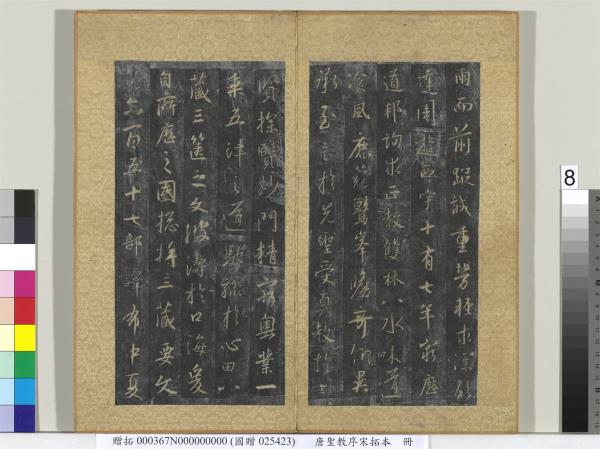 雨而前蹤誠重勞輕求深願
達周遊西宇十有七年窮歷
道邦詢求正教雙林八水味道
飡風鹿菀鷲峯瞻奇仰異
承至言於先聖受真教於上
賢探賾妙門精窮奧業一
乘五律之道馳驟於心田八
藏三篋之文波濤於口海爰
自所歷之國總將三藏要文
凡六百五十七部譯布中夏
8
贈拓 000367N000000000 (國贈 025423) 唐聖教序宋拓本 冊